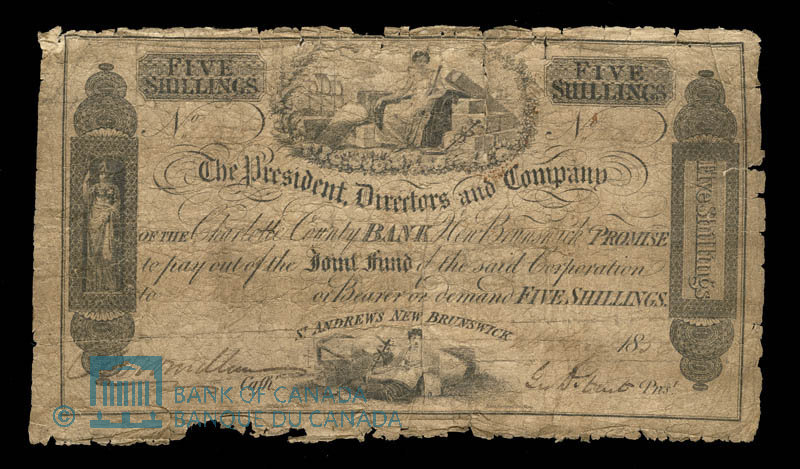 FIVE SHILLINGS
FIVE SHILLINGS
No
No
The President, Directors and Company
OF THE Charlotte County BANK New Brunswick PROMISE
to pay out of the Joint Fund of the said Corporation
to or Bearer on demand FIVE SHILLINGS.
St ANDREWS NEW BRUNSWICK
185
Cash
Prest
Five Shillings
BANK OF CANADA
BANQUE DU CANADA
©